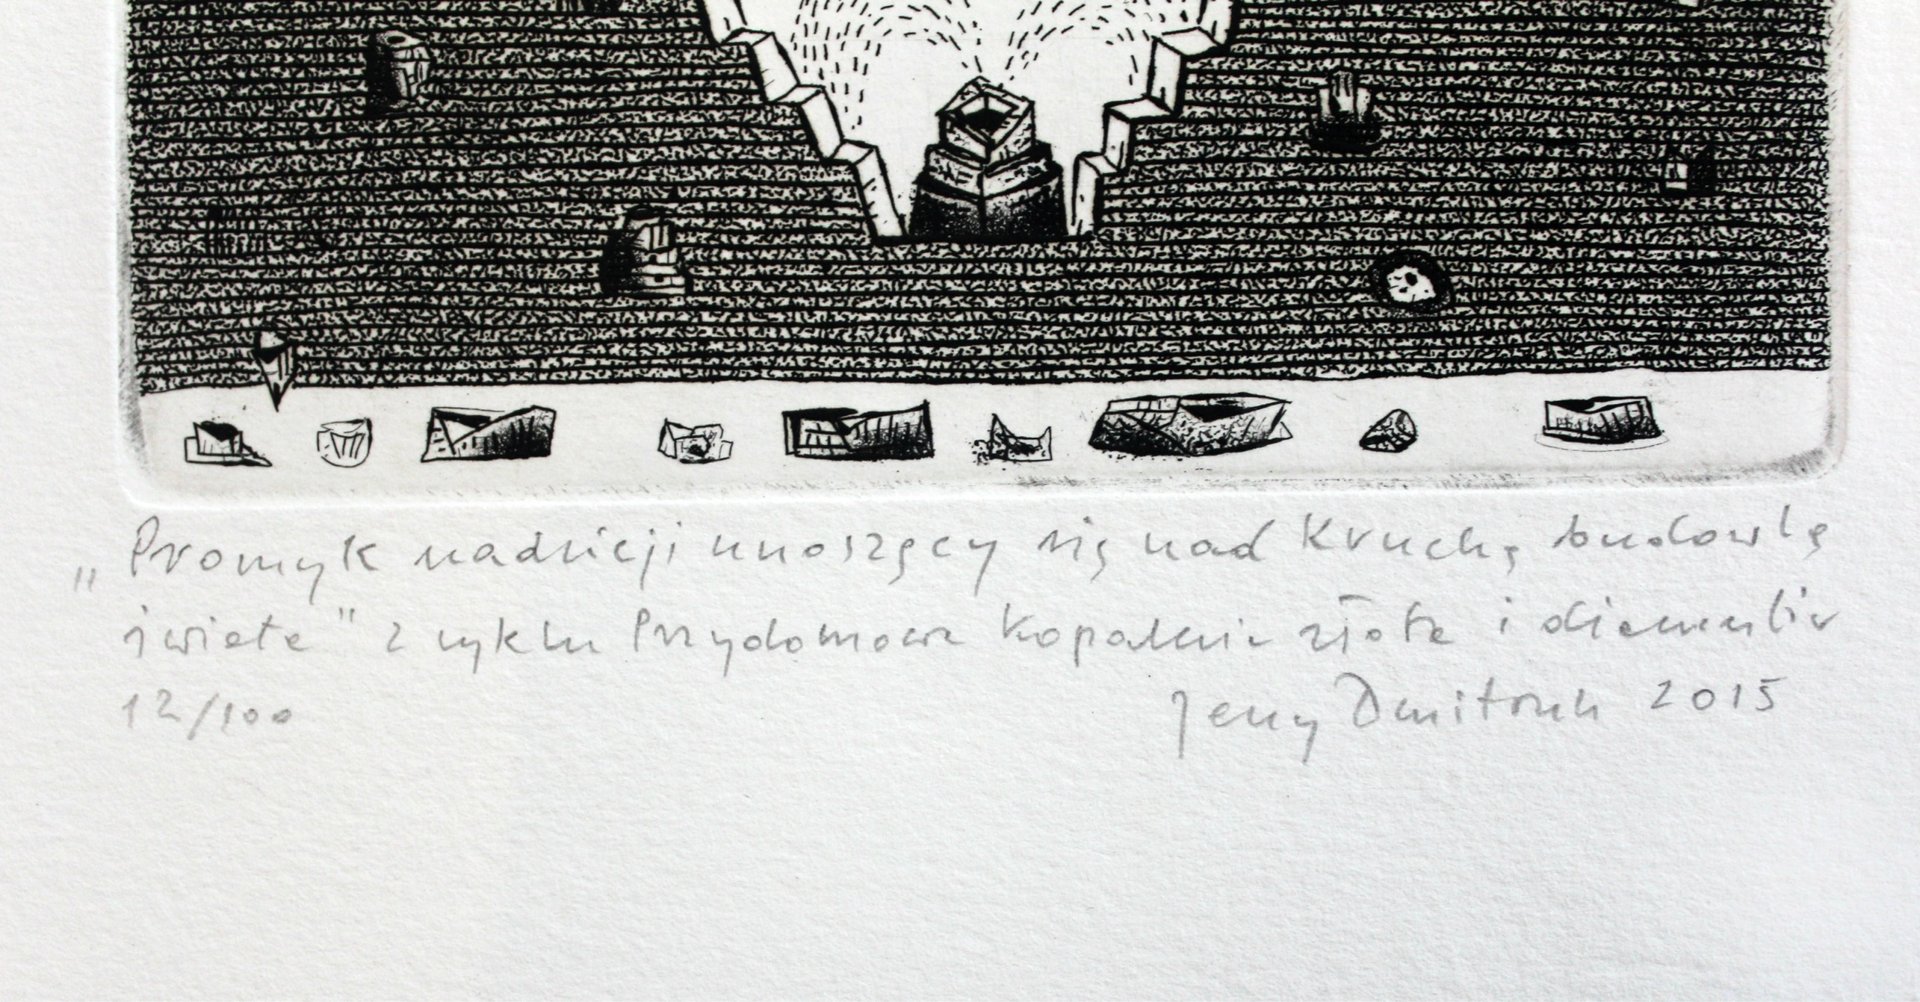 „Promyk nadzieji unoszący się nad Kruchą budowlą
świata" z cyklu Przydomowa Kopalnia złota i diamentów
12/100 Jerzy Dmitruk 2015